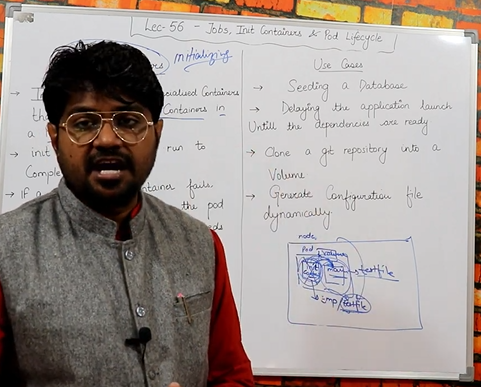 Lec-56 - Jobs, Init Containers & Pod Lifecycle
initializing
cialised Containers
Containers in
a
→ init
run to
Comple
→ If a
tainer fails,
the pod
Use Cases
→ Seeding a Database
→ Delaying the application launch
Untill the dependencies are ready
→ Clone a git repository into a
Volume
→ Generate Configuration file
dynamically.
node
Pod
volume
testfile
tmp/testfile